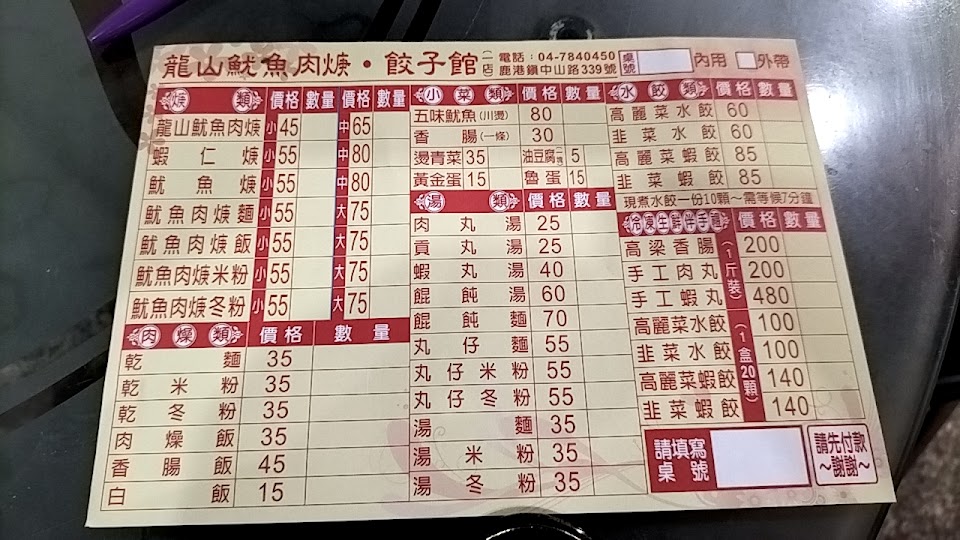 龍山魷魚肉焿・餃子館(一店)
電話：04-7840450
鹿港鎮中山路339號
桌號 內用 外帶
焿類 價格 數量 價格 數量
龍山魷魚肉焿 小 45 中 65
蝦仁焿 小 55 中 80
魷魚焿 小 55 中 80
魷魚肉焿麵 小 55 大 75
魷魚肉焿飯 小 55 大 75
魷魚肉焿米粉 小 55 大 75
魷魚肉焿冬粉 小 55 大 75
肉燥類 價格 數量
乾麵 35
乾米粉 35
乾冬粉 35
肉燥飯 35
香腸飯 45
白飯 15
小菜類 價格 數量
五味魷魚(川燙) 80
香腸(一條) 30
燙青菜 35 油豆腐 5
黃金蛋 15 魯蛋 15
湯類 價格 數量
肉丸湯 25
貢丸湯 25
蝦丸湯 40
餛飩湯 60
餛飩麵 70
丸仔麵 55
丸仔米粉 55
丸仔冬粉 55
湯麵 35
湯米粉 35
湯冬粉 35
水餃類 價格 數量
高麗菜水餃 60
韭菜水餃 60
高麗菜蝦餃 85
韭菜蝦餃 85
現煮水餃一份10顆～需等候7分鐘
冷凍生鮮伴手禮 價格 數量
(1斤裝)
高梁香腸 200
手工肉丸 200
手工蝦丸 480
(1盒20顆)
高麗菜水餃 100
韭菜水餃 100
高麗菜蝦餃 140
韭菜蝦餃 140
請填寫
桌號
請先付款
～謝謝～